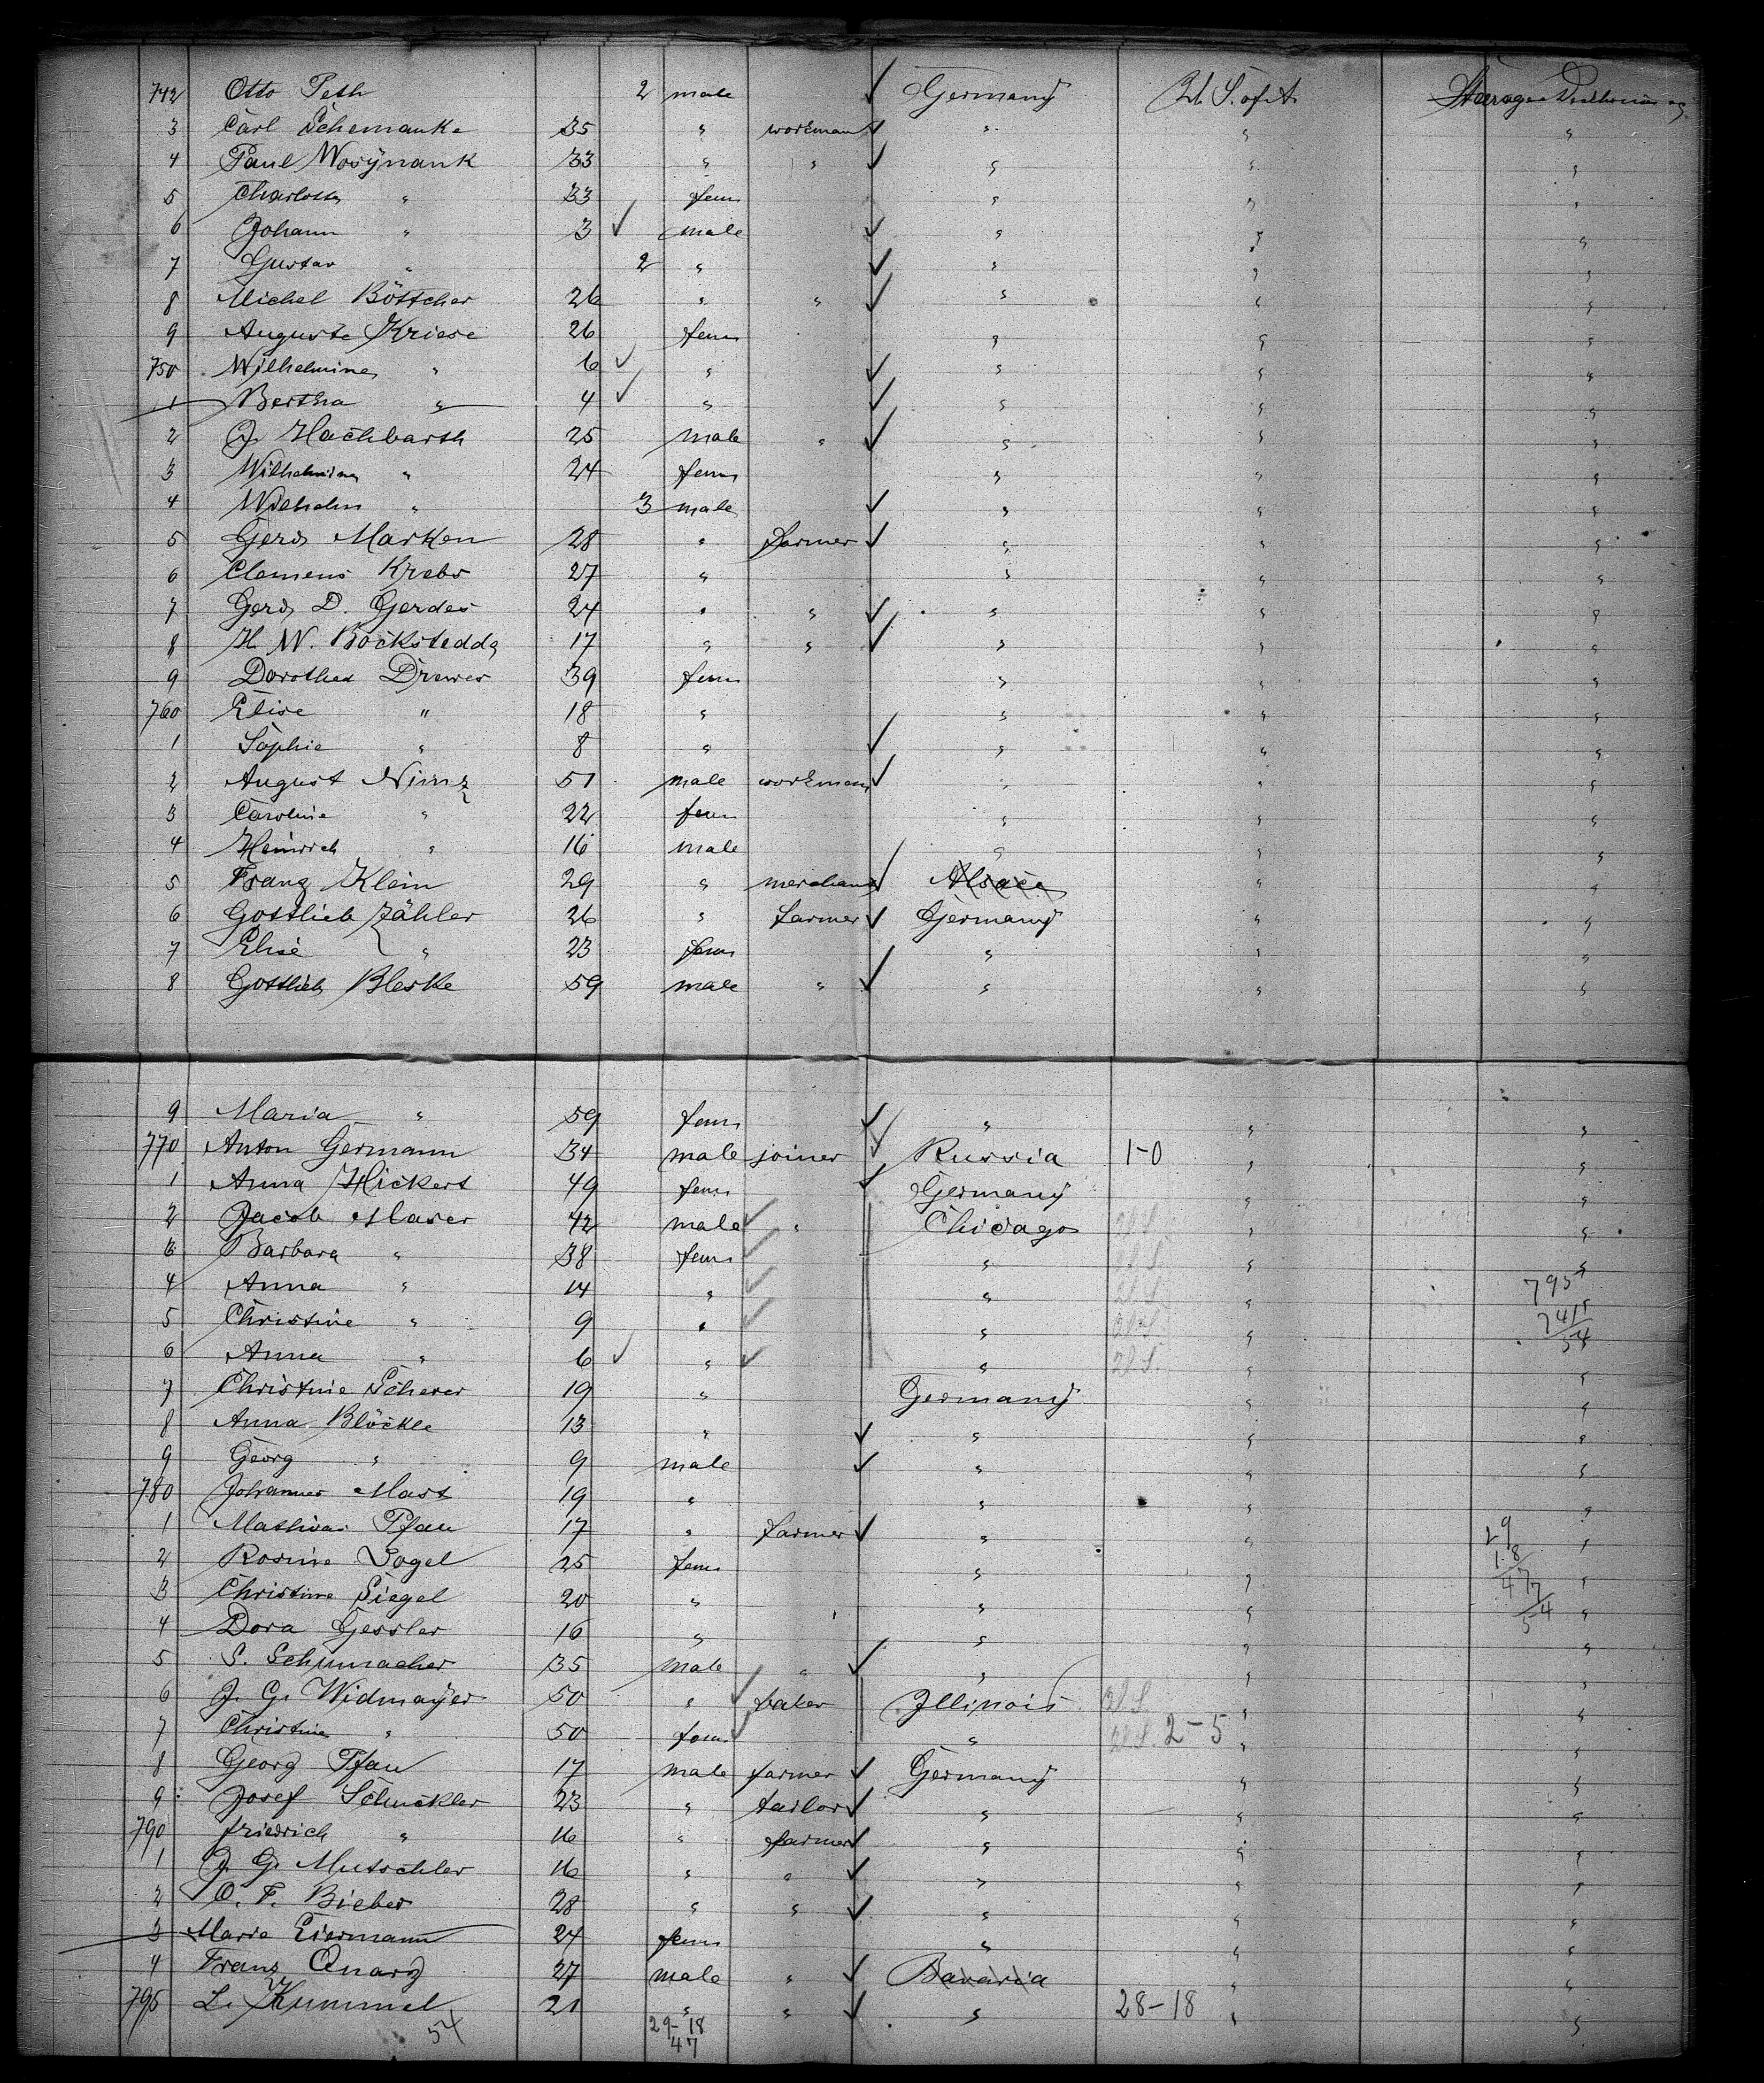 742 Otto Peth 2 male ✓ Germany U. S. of A. Steerage
3 Carl Schemanke 35 " workman ✓ " " "
4 Paul Wosynank 33 " " ✓ " " "
5 Charlotte " 33 fem " " "
6 Johann " 3 ✓ male ✓ " " "
7 Gustav " 2 " ✓ " " "
8 Michel Böttcher 26 " " ✓ " " "
9 Auguste Kriese 26 fem " " "
750 Wilhelmine " 6 ✓ " ✓ " " "
1 Bertha " 4 ✓ " ✓ " " "
2 J. Hachbarth 25 male " ✓ " " "
3 Wilhelmine " 24 fem " " "
4 Wilhelm " 3 male ✓ " " "
5 Gerd Marken 28 " farmer ✓ " " "
6 Clemens Krebs 27 " " " "
7 Gerd D. Gerdes 24 " " ✓ " " "
8 H. W. Bockstedde 17 " " ✓ " " "
9 Dorothea Drewes 39 fem " " "
760 Elise " 18 " " " "
1 Sophie " 8 " ✓ " " "
2 August Nimz 51 male workman ✓ " " "
3 Caroline " 22 fem " " "
4 Heinrich " 16 male " " "
5 Franz Klein 29 " merchant ✓ Alsace " "
6 Gottlieb Zähler 26 " farmer ✓ Germany " "
7 Elise " 23 fem " " "
8 Gottlieb Bleske 59 male " ✓ " " "
9 Maria " 59 fem ✓ " " "
770 Anton Germann 34 male joiner ✓ Russia 1-0 " "
1 Anna Hickert 49 fem ✓ Germany " "
2 Jacob Maser 42 male ✓ " Chicago U.S. " "
3 Barbara " 38 fem ✓ " U.S. " "
4 Anna " 14 " ✓ " U.S. " " 795
5 Christine " 9 " ✓ " U.S. " " 741
6 Anna " 6 ✓ " ✓ " U.S. " " 54
7 Christine Scherer 19 " Germany " "
8 Anna Blöckle 13 " ✓ " " "
9 Georg " 9 male ✓ " " "
780 Johannes Mast 19 " " " "
1 Mathias Pfau 17 " farmer ✓ " " " 29
2 Rosine Vogel 25 fem " " " 18
3 Christine Siegel 20 " " " " 47 7
4 Dora Gessler 16 " " " " 54
5 S. Schumacher 35 male " ✓ " " "
6 J. G. Widmayer 50 " ✓ baker Illinois U.S. " "
7 Christine " 50 fem ✓ " U.S. 2-5 " "
8 Georg Pfau 17 male farmer ✓ Germany " "
9 Josef Schuckler 23 " tailor ✓ " " "
790 Friedrich " 16 " farmer ✓ " " "
1 J. G. Mutschler 16 " " ✓ " " "
2 O. F. Bieber 28 " " ✓ " " "
3 Marie Eiermann 24 fem " " "
4 Franz Quarz 27 male " ✓ Bavaria " "
795 L. Kummel 21 " " ✓ " 28-18 " "
54 29-18
47